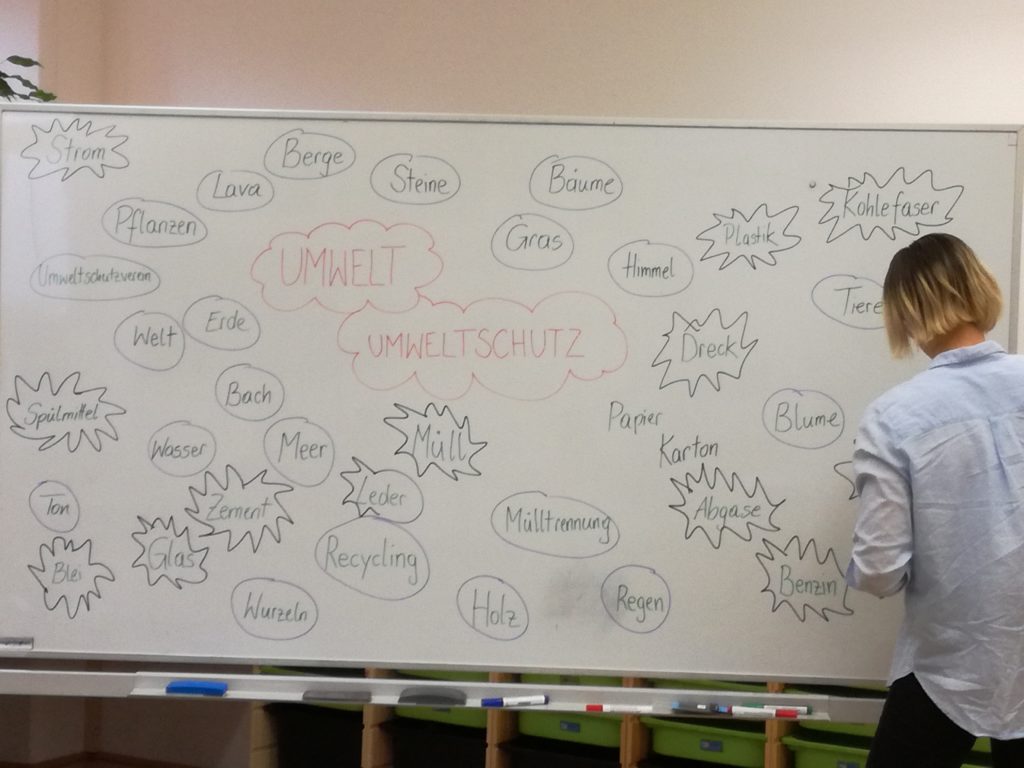 Strom
Berge
Lava
Steine
Bäume
Pflanzen
Gras
Plastik
Kohlefaser
UMWELT
Himmel
Umweltschutzverein
Tiere
Welt
Erde
UMWELTSCHUTZ
Dreck
Spülmittel
Bach
Müll
Papier
Blume
Wasser
Meer
Karton
Ton
Zement
Leder
Mülltrennung
Abgase
Blei
Glas
Recycling
Benzin
Wurzeln
Holz
Regen